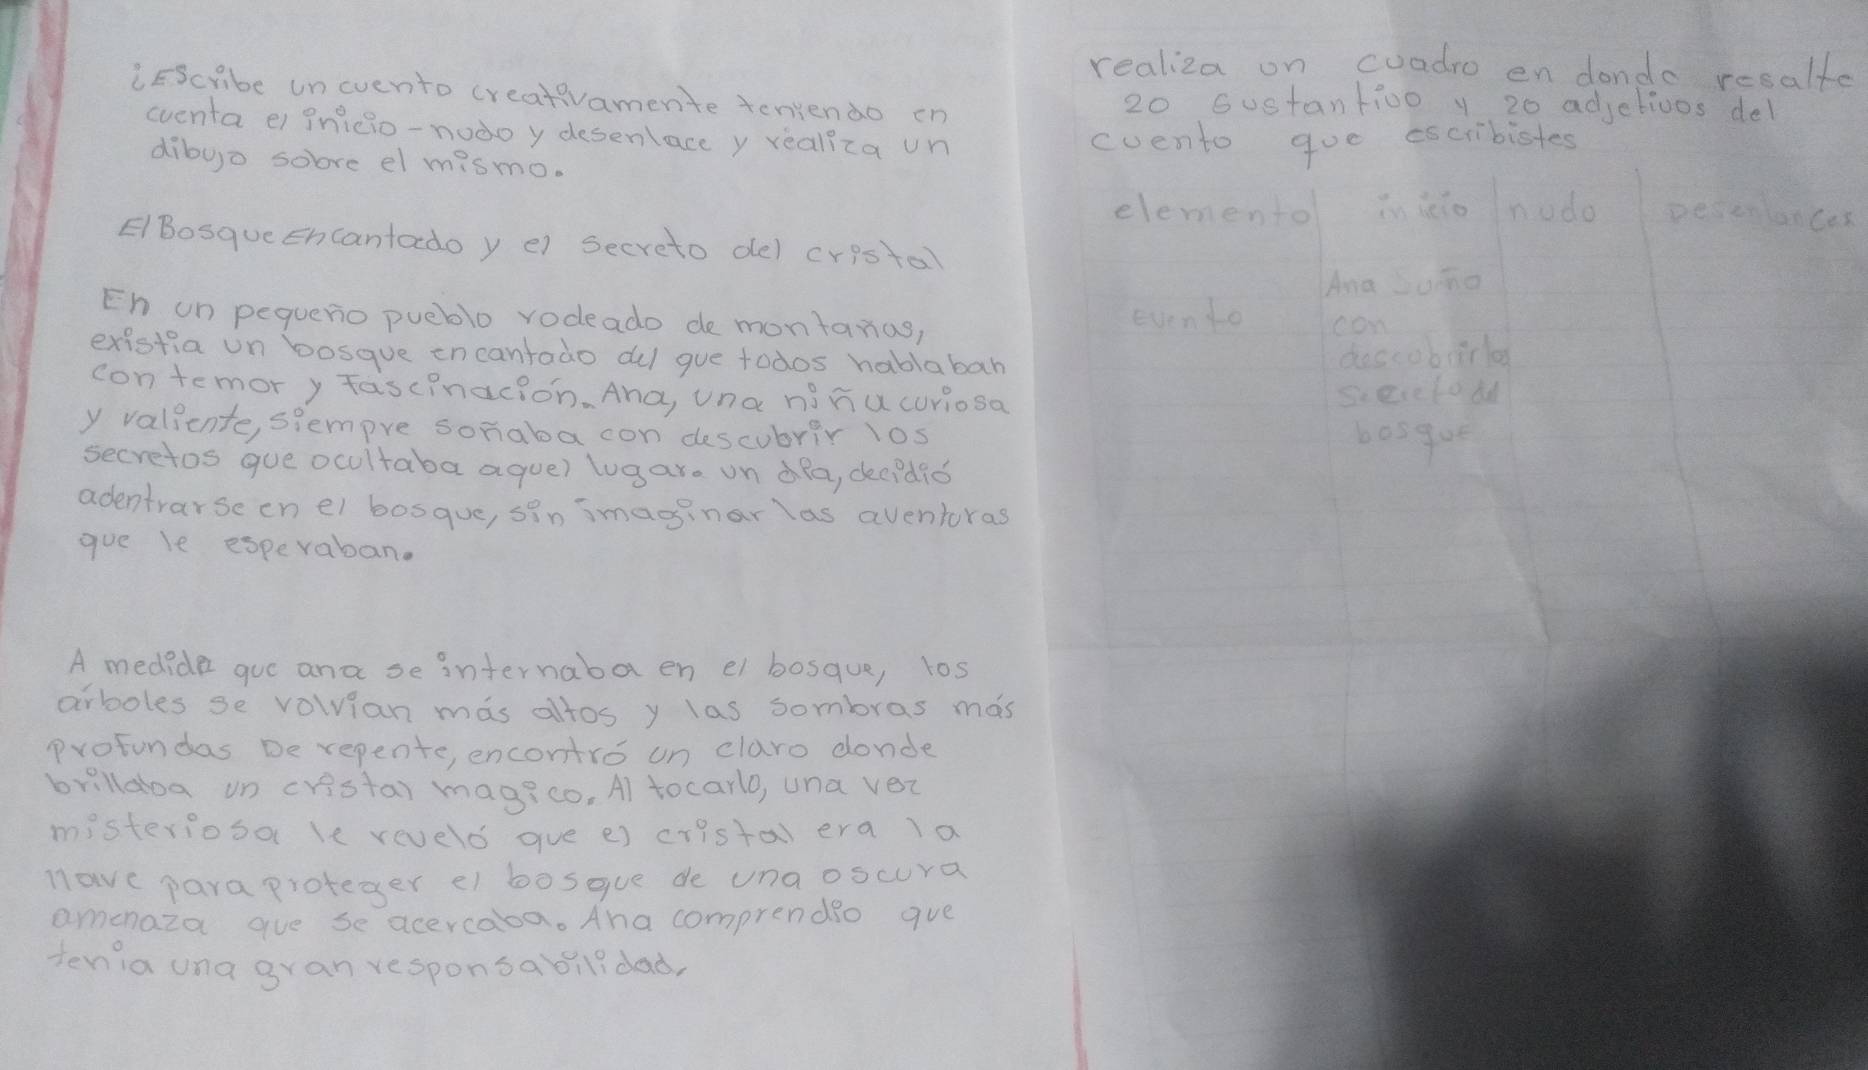 ¡Escribe un cuento creativamente teniendo en
cuenta el inicio-nudo y desenlace y realiza un
dibujo sobre el mismo.
El Bosque Encantado y el secreto del cristal
En un pequeño pueblo rodeado de montañas,
existia un bosque encantado del que todos hablaban
con temor y fascinación. Ana, una niña curiosa
y valiente, siempre soñaba con descubrir los
secretos que ocultaba aquel lugar. un día, decidió
adentrarse en el bosque, sin imaginar las aventuras
que le esperaban.
A medida que ana se internaba en el bosque, los
árboles se volvian más altos y las sombras más
profundas De repente, encontró un claro donde
brillaba un cristal magico. Al tocarlo, una voz
misteriosa le reveló que el cristal era la
llave para proteger el bosque de una oscura
amenaza que se acercaba. Ana comprendio que
tenia una gran responsabilidad.
realiza un cuadro en donde resalte
20 sustantivo y 20 adjetivos del
cuento que escribistes
elemento inicio nudo Desenlances
evento
Ana Suño
con
descubrir los
secreto del
bosque